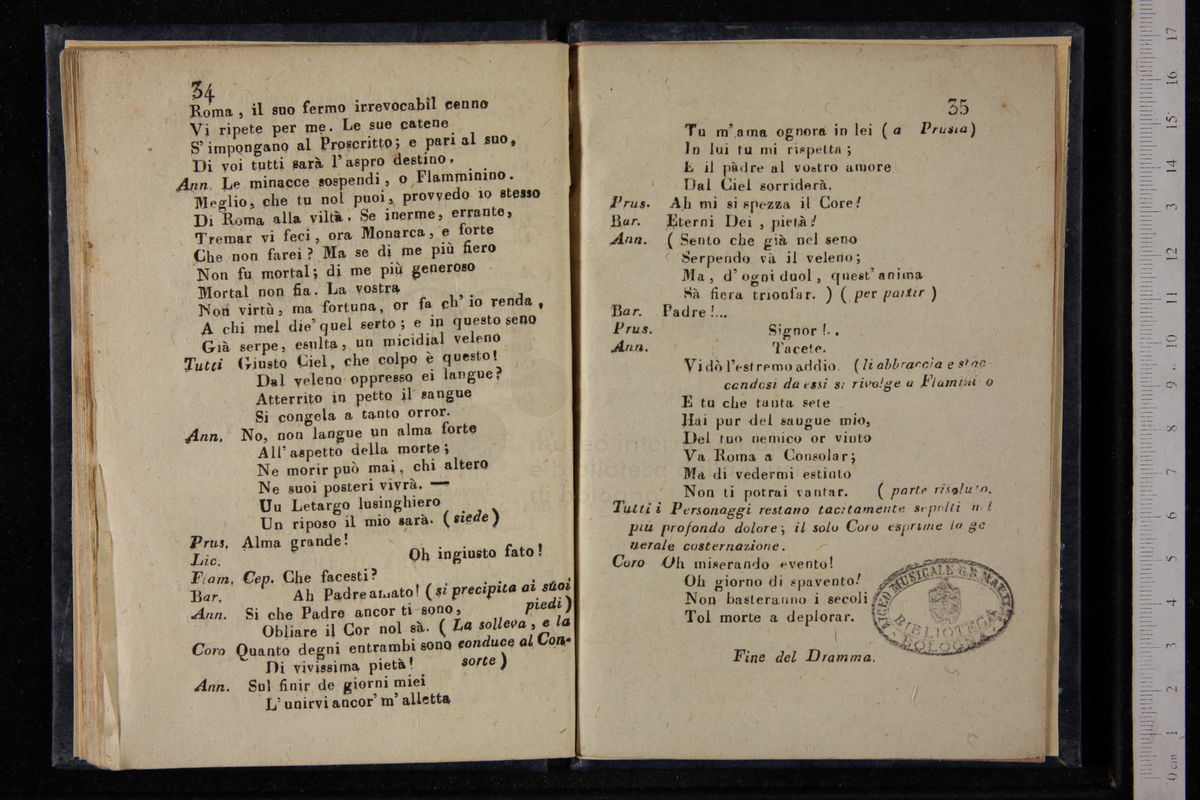 34
Roma , il suo fermo irrevocabil cenno
Vi ripete per me. Le sue catene
S' impongano al Proscritto; e pari al suo,
Di voi tutti sarà l'aspro destino.
Ann. Le minacce sospendi, o Flamminino.
Meglio, che tu nol puoi, provvedo io stesso
Di Roma alla viltà. Se inerme, errante,
Tremar vi feci, ora Monarca, e forte
Che non farei? Ma se di me più fiero
Non fu mortal; di me più generoso
Mortal non fia. La vostra
Non virtù, ma fortuna, or fa ch' io renda,
A chi mel die' quel serto; e in questo seno
Già serpe, esulta, un micidial veleno
Tutti Giusto Ciel, che colpo è questo!
Dal veleno oppresso ei langue?
Atterrito in petto il sangue
Si congela a tanto orror.
Ann. No, non langue un alma forte
All' aspetto della morte;
Ne morir può mai, chi altero
Ne suoi posteri vivrà. —
Uu Letargo lusinghiero
Un riposo il mio sarà. (siede)
Prus. Alma grande!
Lic. Oh ingiusto fato!
Flam. Cep. Che facesti?
Bar. Ah Padre amato! (si precipita ai suoi
Ann. Si che Padre ancor ti sono, piedi)
Obliare il Cor nol sà. ( La solleva, e la
Coro Quanto degni entrambi sono conduce al Con-
Di vivissima pietà! sorte )
Ann. Sul finir de giorni miei
L' unirvi ancor' m' alletta
35
Tu m' ama ognora in lei ( a Prusia)
In lui tu mi rispetta ;
E il pàdre al vostro amore
Dal Ciel sorriderà.
Prus. Ah mi si spezza il Core!
Bar. Eterni Dei , pietà!
Ann. ( Sento che già nel seno
Serpendo và il veleno;
Ma, d' ogni duol , quest' anima
Sà fiera trionfar. ) ( per partir )
Bar. Padre !...
Prus. Signor !..
Ann. Tacete.
Vi dò l'estremo addio. (li abbraccia e stac-
candosi da essi si rivolge a Flaminino
E tu che tanta sete
Hai pur del sangue mio,
Del tuo nemico or vinto
Va Roma a Consolar;
Ma di vedermi estinto
Non ti potrai vantar. ( parte risoluto.
Tutti i Personaggi restano tacitamente sepolti nel
più profondo dolore; il solo Coro esprime la ge
nerale costernazione.
Coro Oh miserando evento!
Oh giorno di spavento!
Non basteranno i secoli
Tol morte a deplorar.
Fine del Dramma.
LICEO MUSICALE G. B. MARTINI
BIBLIOTECA
BOLOGNA
museo inter
e biblioteca
di bolo
0 cm 1 2 3 4 5 6 7 8 9 10 11 12 13 14 15 16 17